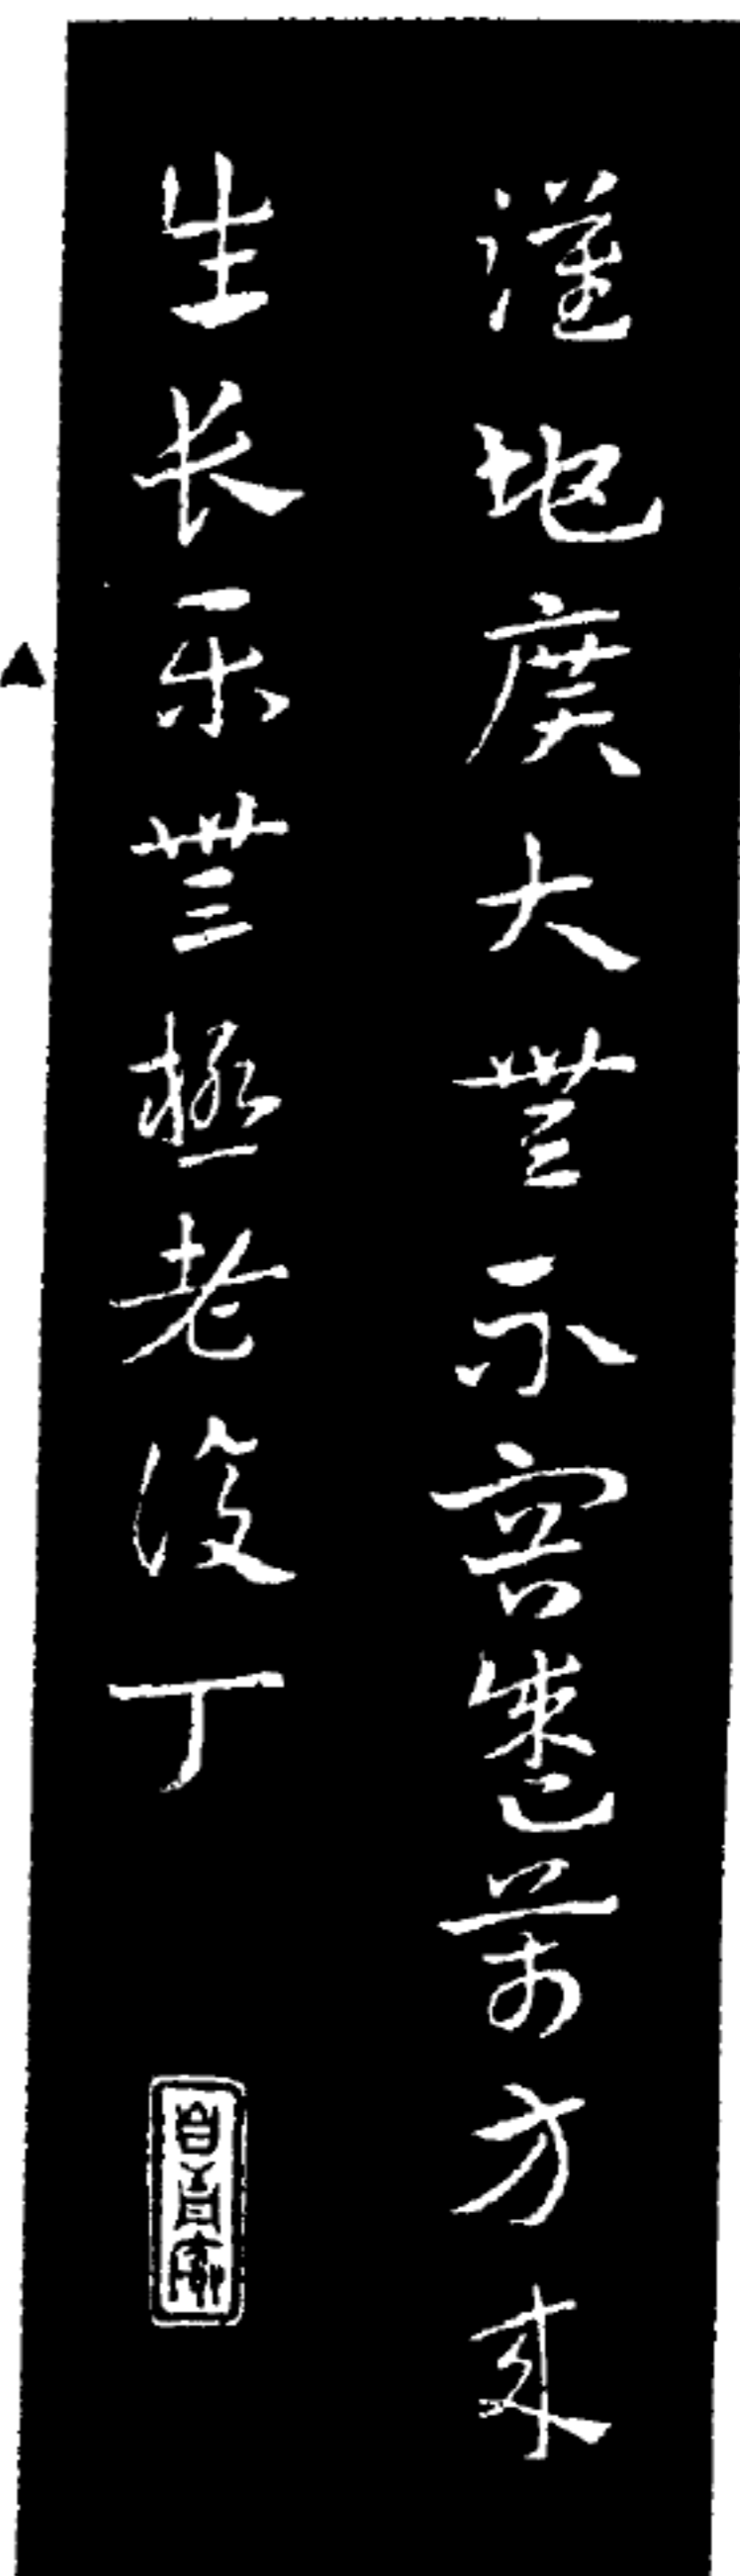 漢地廣大無不容盛遍萬方來
生長樂無極老復丁